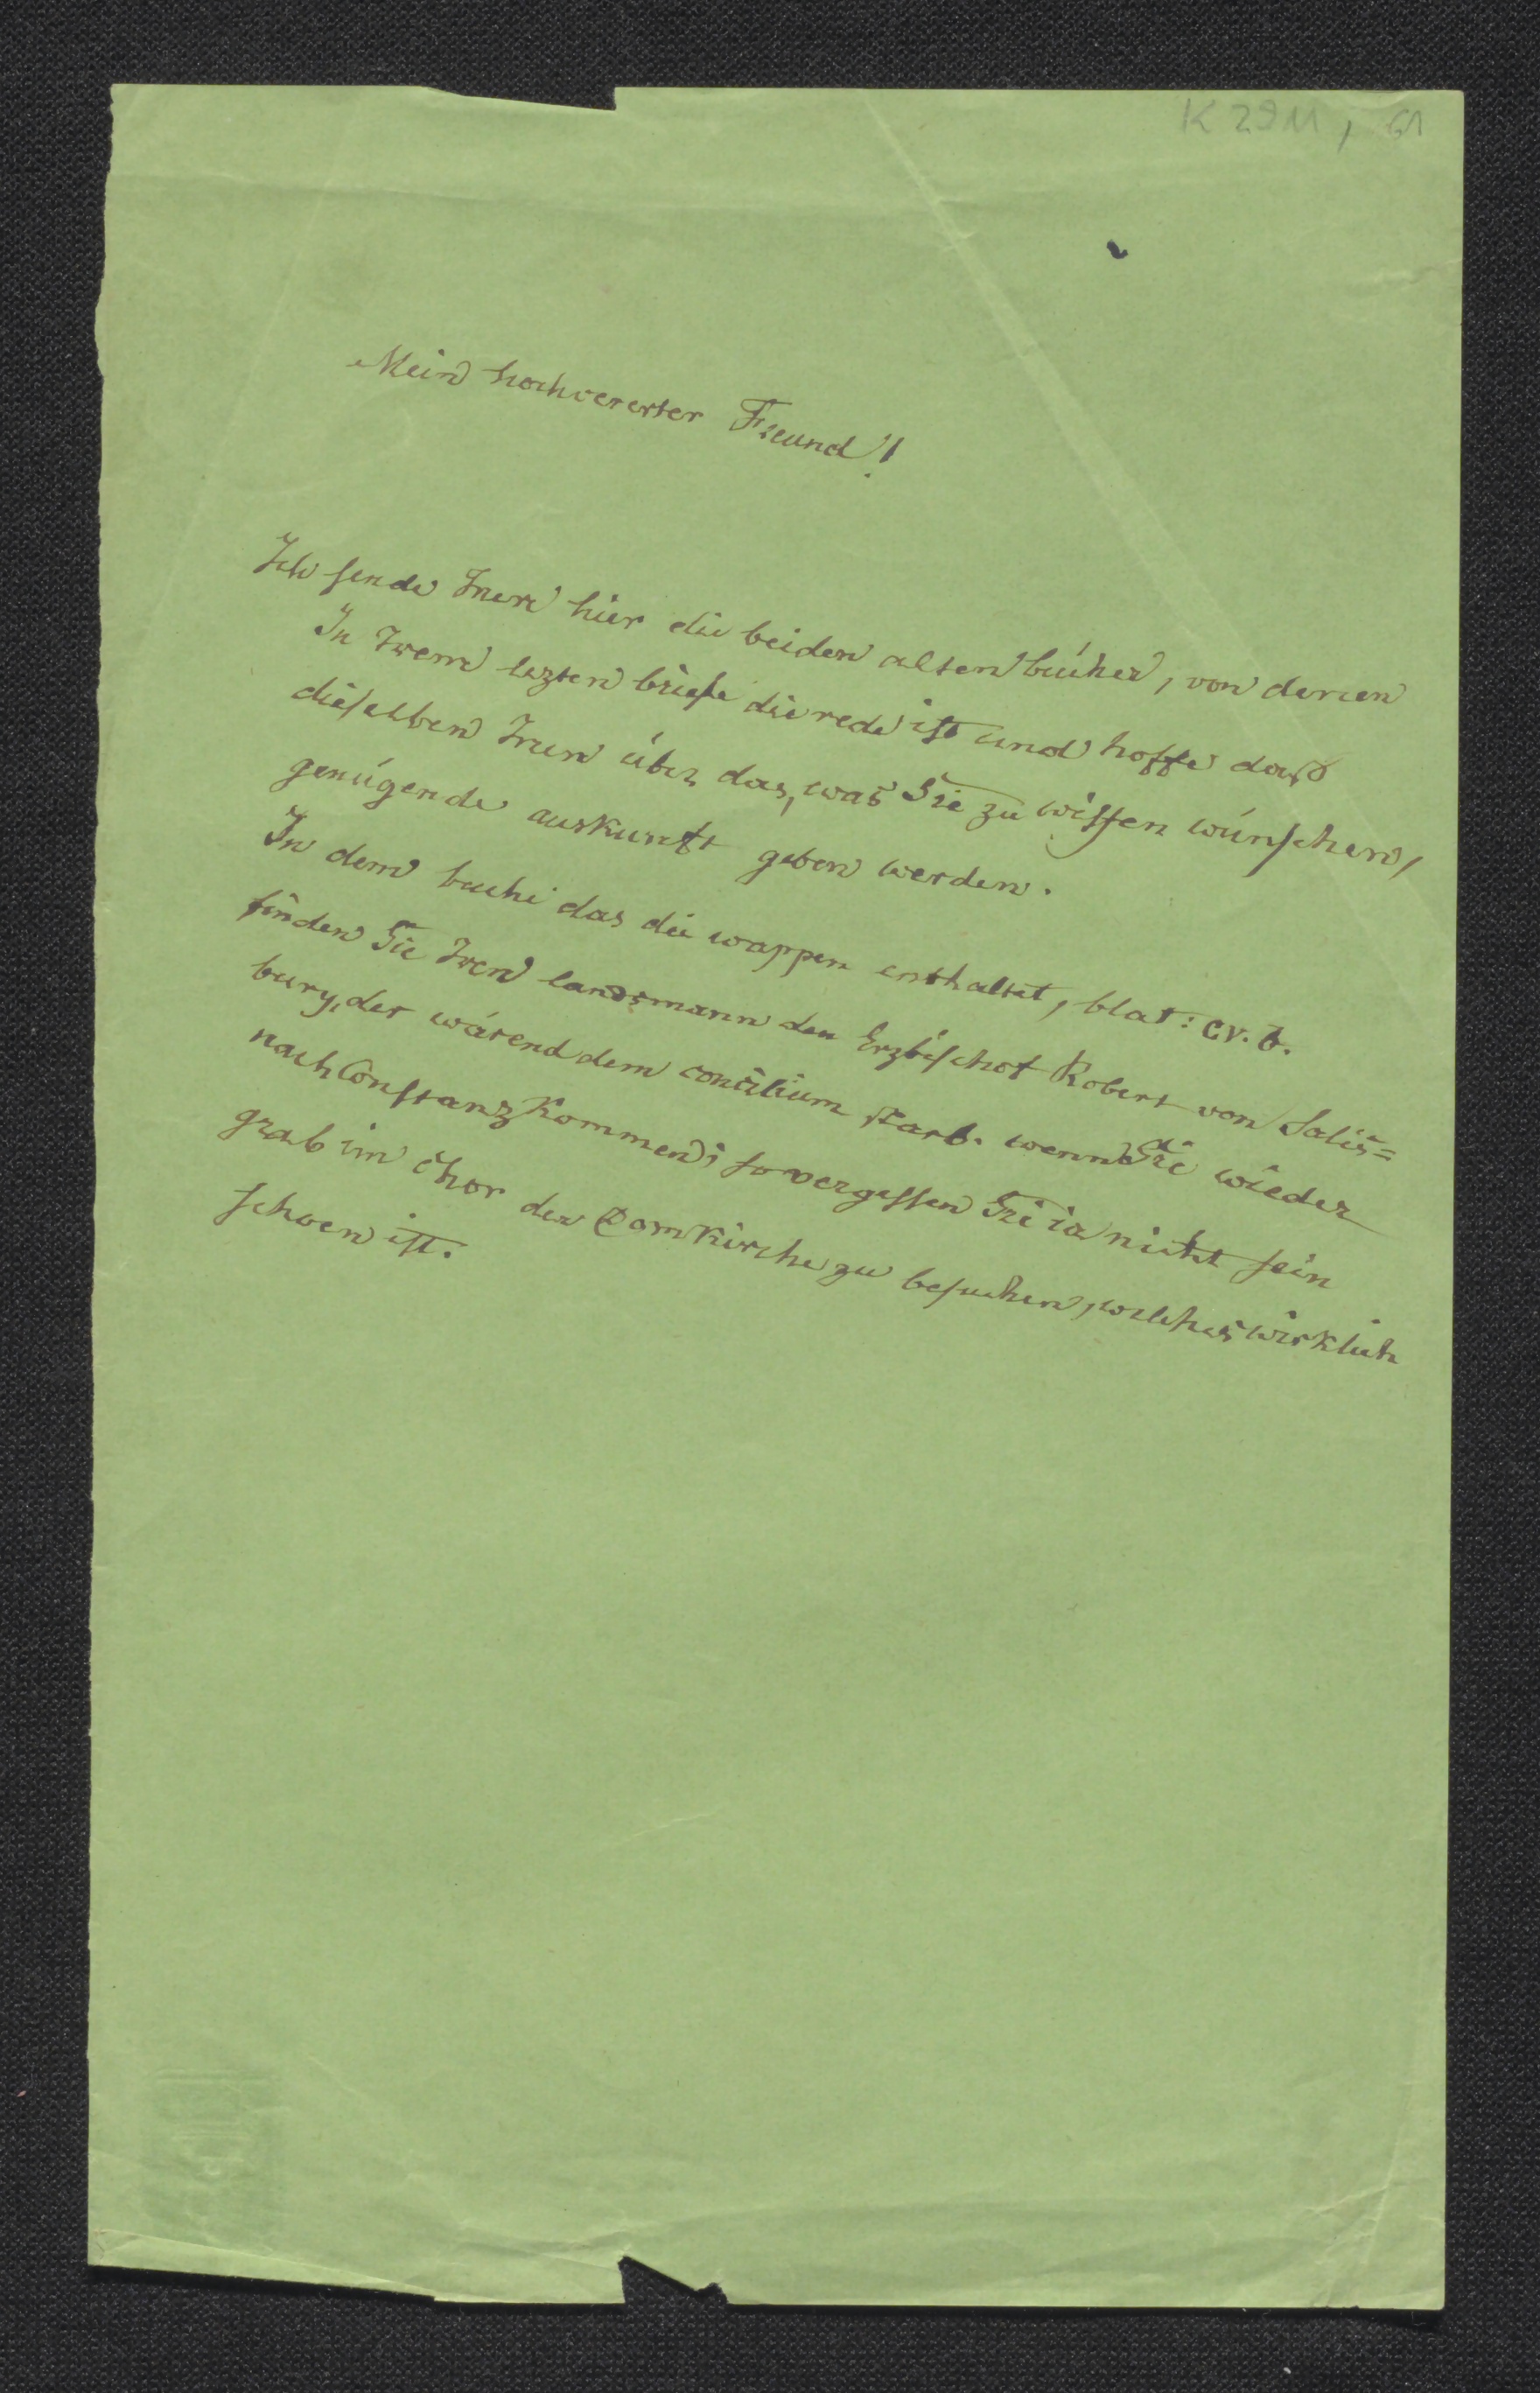 K 2911, 61
Mein hochvererter Freund!
Ich sende Inen hier die beiden alten bücher, von denen
In Irem lezten briefe die rede ist und hoffe daß
dieselben Inen über das, was Sie zu wissen wünschen,
genügende auskunft geben werden.
In dem buche das die wappen enthaltet, blat: CV. b.
finden Sie Iren landsmann den Erzbischof Robert von Salis=
bury, der wärend dem concilium starb. wenn Sie wieder
nach Constanz kommen; so vergessen Sie ia nicht sein
grab im chor der Domkirche zu besuchen, welches wirklich
schoen ist.